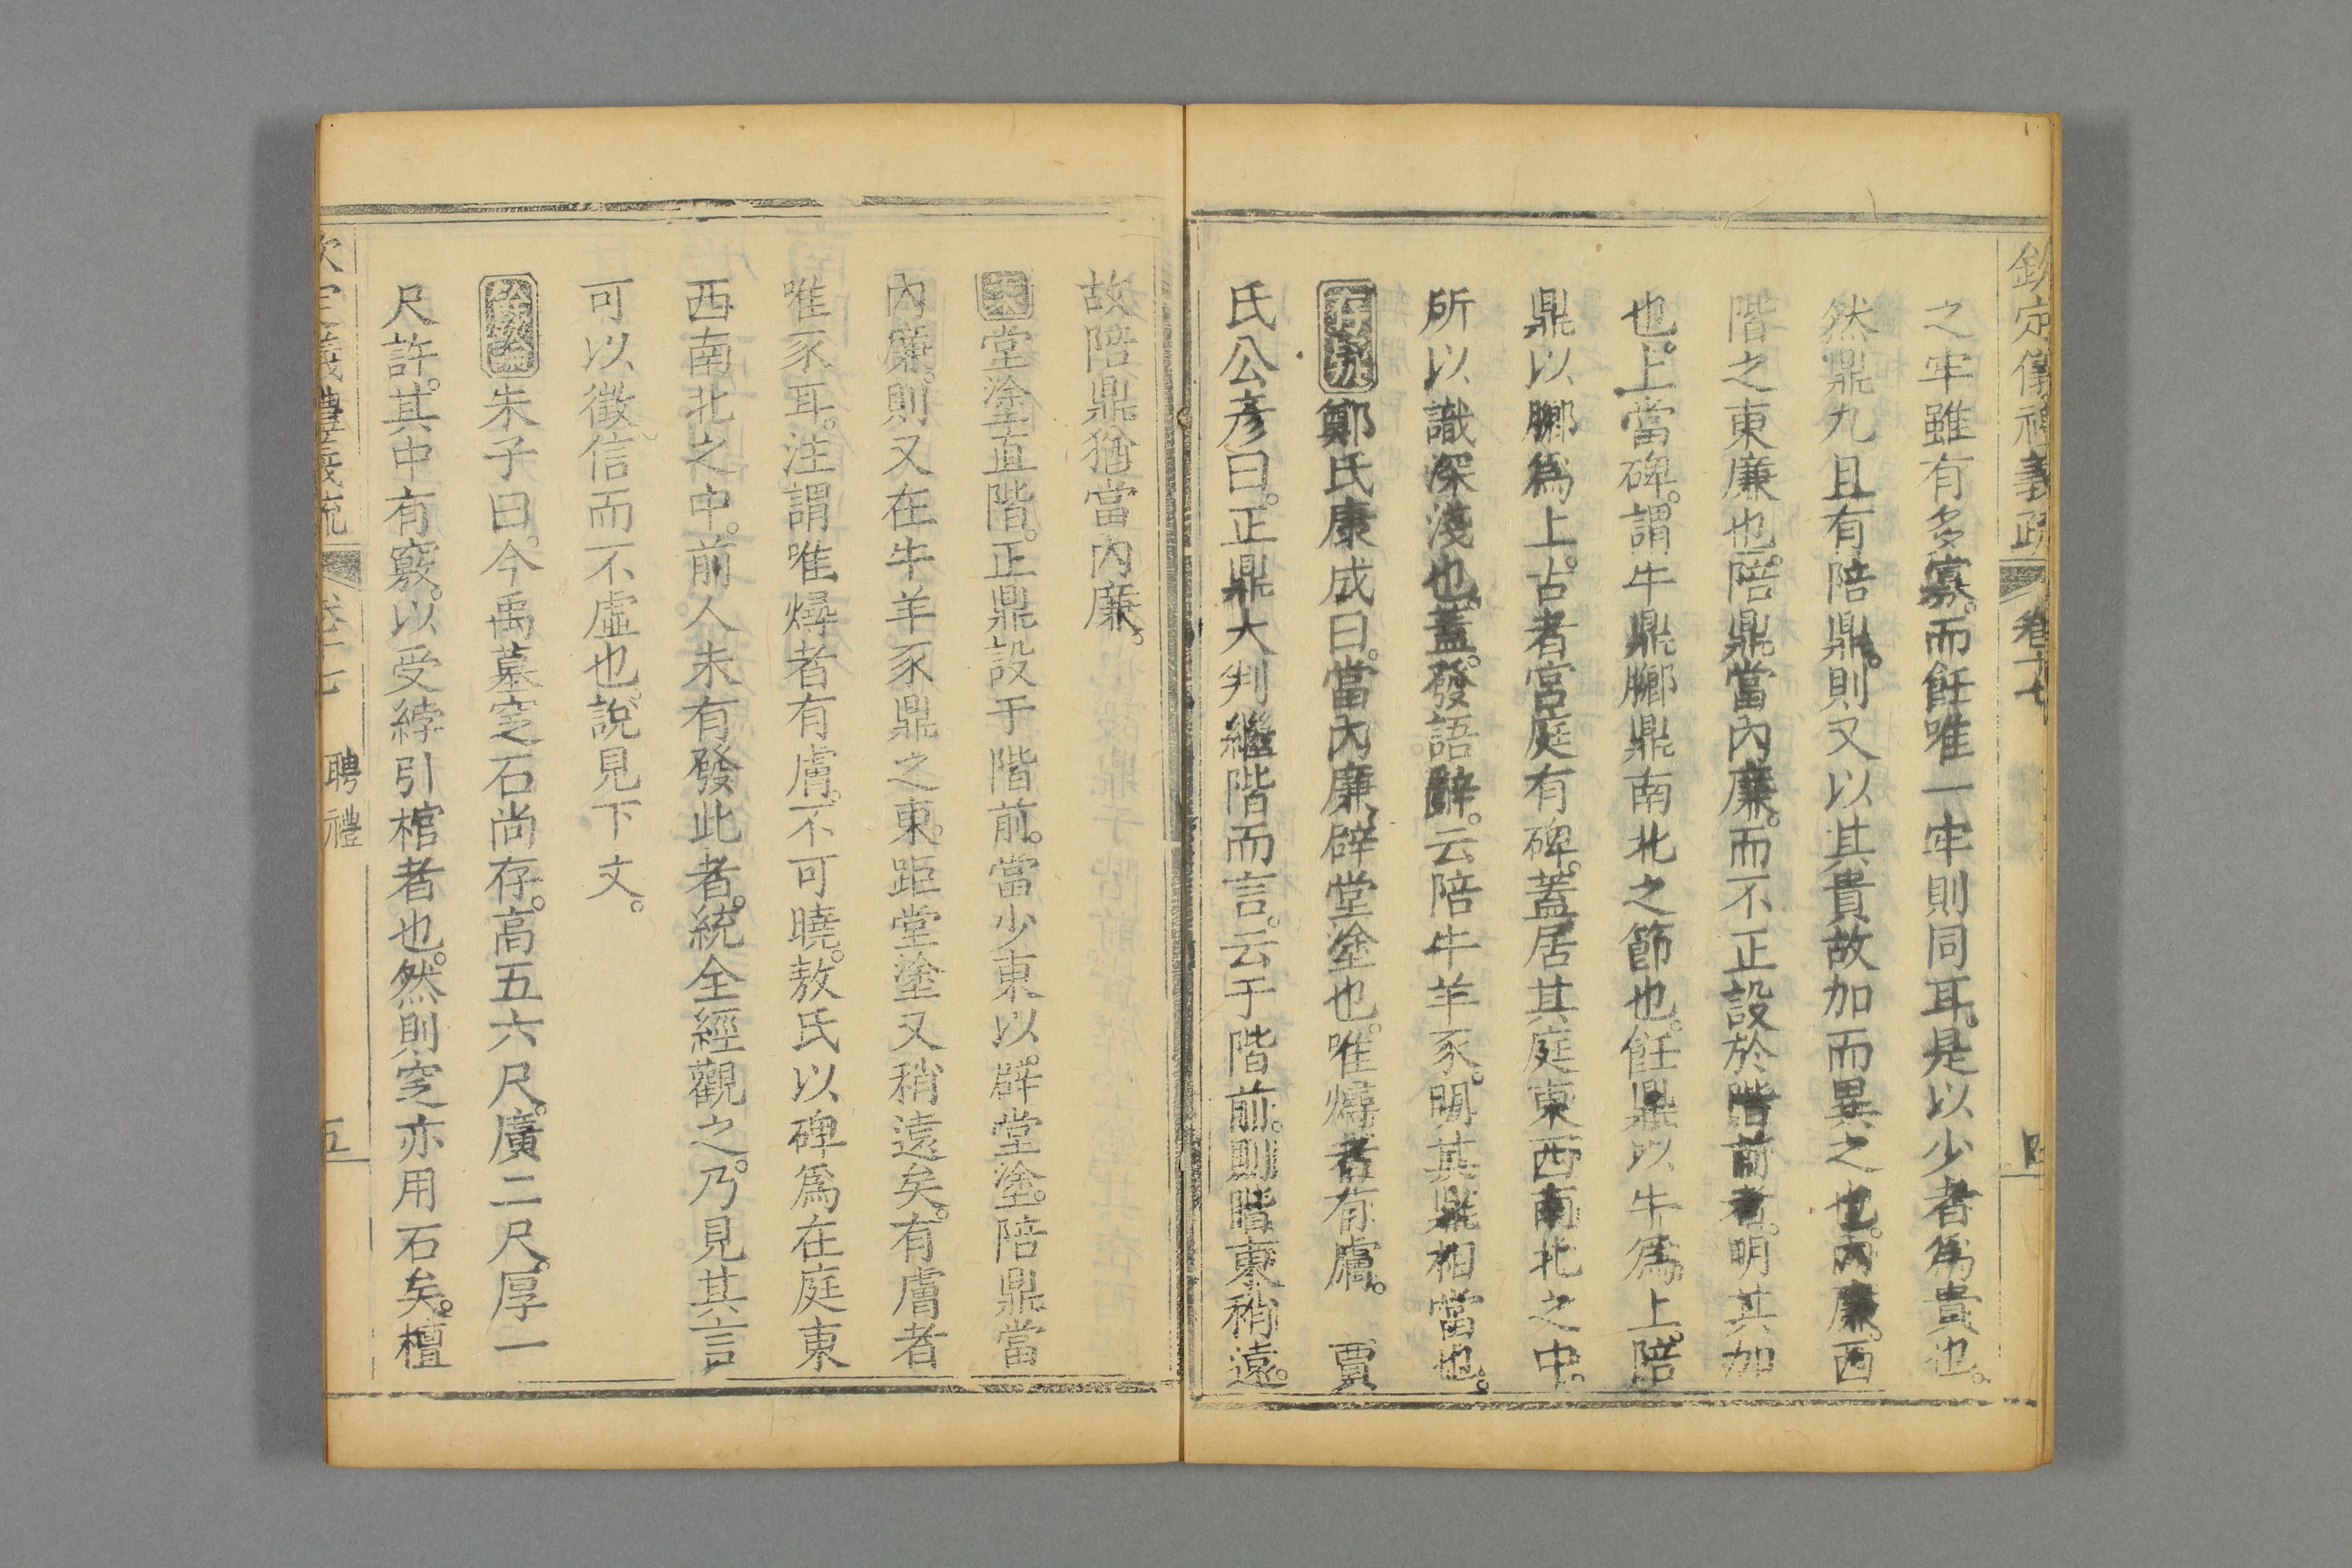 欽定儀禮義疏 卷十七
之牢雖有多寡。而飪唯一牢則同耳。是以少者爲貴也。
然鼎九且有陪鼎。則又以其貴故加而異之也。內廉。西
階之東廉也。陪鼎。當內廉。而不正設於階前者。明其加
也。上當碑。謂牛鼎膷鼎南北之節也。飪鼎以牛爲上。陪
鼎以膷爲上。古者宮庭有碑。蓋居其庭東西南北之中。
所以識深淺也。蓋。發語辭。云陪牛羊豕。明其鼎相當也。
存疑 鄭氏康成曰。當內廉。辟堂塗也。唯燖者有膚。 賈
氏公彥曰。正鼎大判繼階而言。云于階前。則階東稍遠。
故陪鼎猶當內廉。
案 堂塗直階。正鼎設于階前。當少東以辟堂塗。陪鼎當
內廉。則又在牛羊豕鼎之東。距堂塗又稍遠矣。有膚者
唯豕耳。注謂唯燖者有膚。不可曉。敖氏以碑爲在庭東
西南北之中。前人未有發此者。統全經觀之。乃見其言
可以徵信而不虛也。說見下文。
餘論 朱子曰。今禹墓窆石尚存。高五六尺。廣二尺。厚一
尺許。其中有竅。以受綍引棺者也。然則窆亦用石矣。檀
欽定儀禮義疏 卷十七 聘禮 五